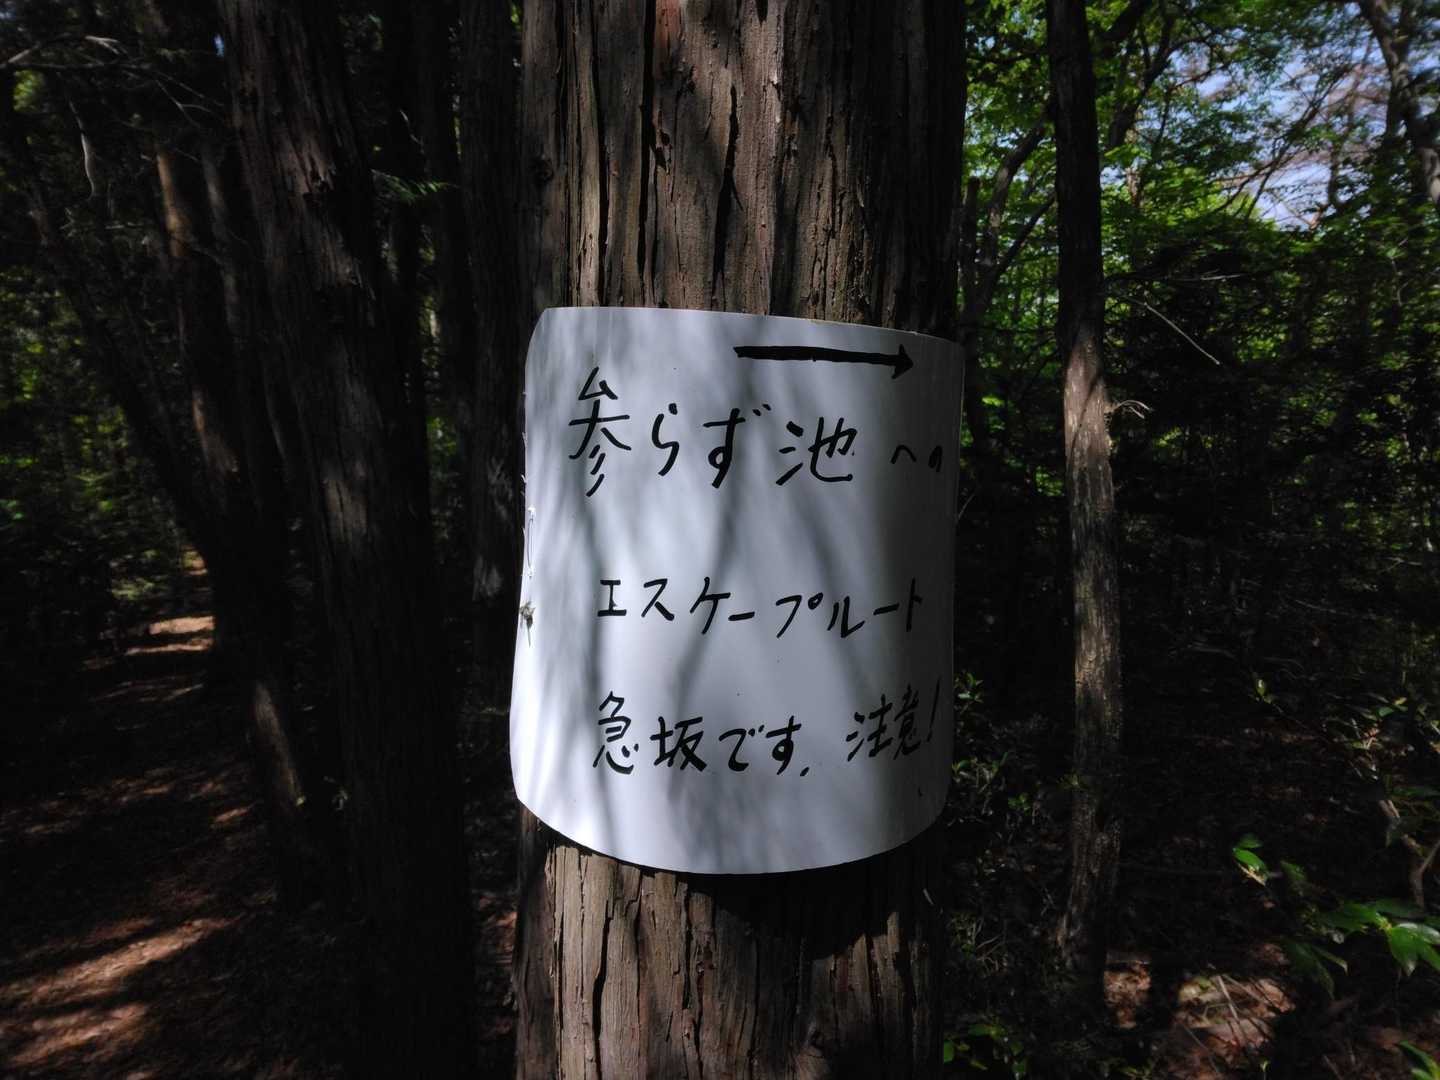 →
参らず池への
エスケープルート
急坂です. 注意!